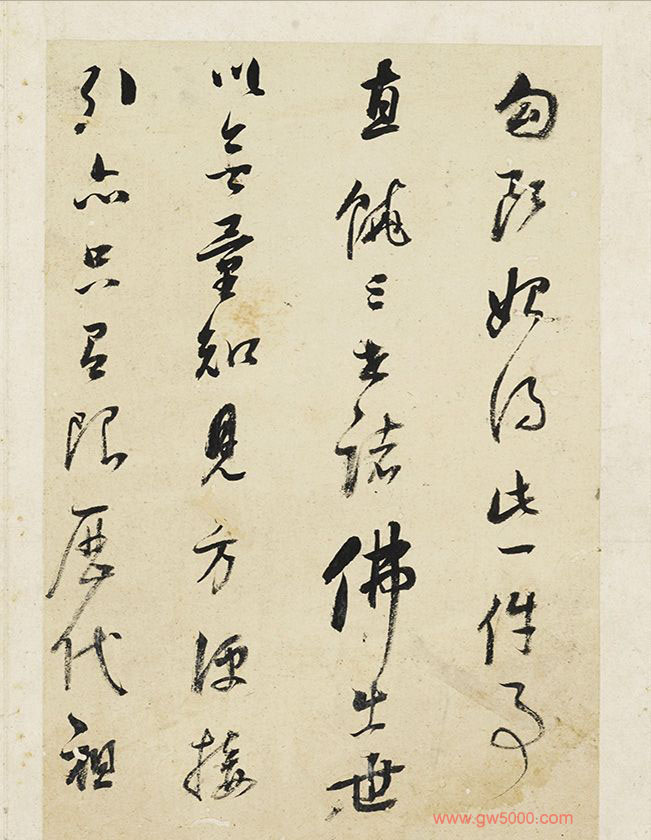 始得此一件事
直饒三世諸佛出世
以無量知見方便接
引亦只有限歷代祖
www.gw5000.com